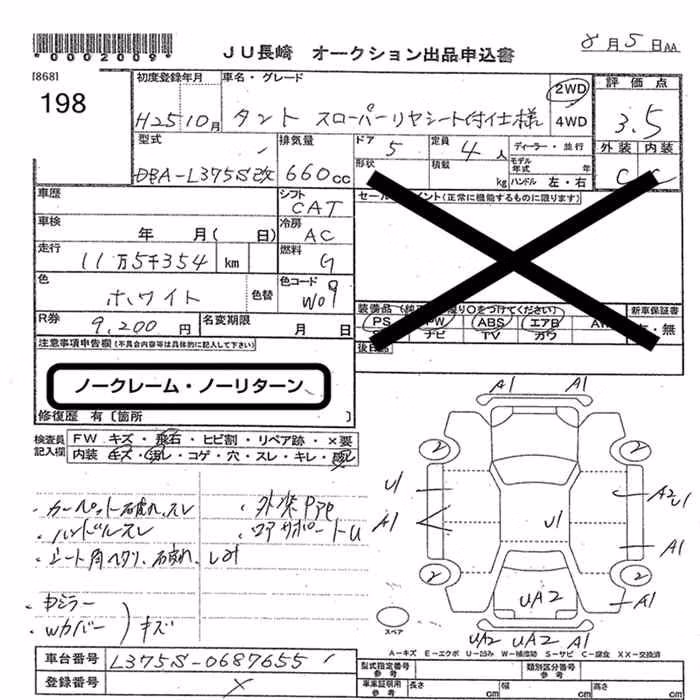 *0002009*
JU長崎 オークション出品申込書
8月5日AA
[868]
198
初度登録年月
車名・グレード
2WD
4WD
評価点
H25 10月
タント スローパーリヤシート付仕様
3.5
型式
排気量
ドア 5
定員 4人
ディーラー・並行
外装 内装
DBA-L375S改
660cc
形状
積載 kg
モデル年式 年
ハンドル 左・右
C C
車歴
シフト
CAT
セールスポイント(正常に機能するものに限ります)
車検 年 月( 日)
冷房
AC
走行
11万5千354 km
燃料
G
色
ホワイト
色替
色コード
W09
R券
9,200円
名変期限 月 日
装備品
新車保証書
PS PW ABS エアB AW
有・無
ナビ TV カワ
後日品
注意事項申告欄(不具合内容等は具体的に記入して下さい)
ノークレーム・ノーリターン
修復歴 有〔箇所 〕
検査員記入欄
FW キズ・飛石・ヒビ割・リペア跡・×要
内装 キズ・汚レ・コゲ・穴・スレ・キレ・
A1 A1
2 2
U1
A2U1
・ハンドルスレ
A1
U1
A1
2 2
UA2
A1
・Wカバー
キズ
スペア
UA2 UA2 A1
A-キズ E-エクボ U-凹み W-補修跡 S-サビ C-腐食 XX-交換済
車台番号
L375S-0687655
型式指定番号 参考
類別区分番号 参考
登録番号
×
車車証明用 参考
長さ cm
幅 cm
高さ cm